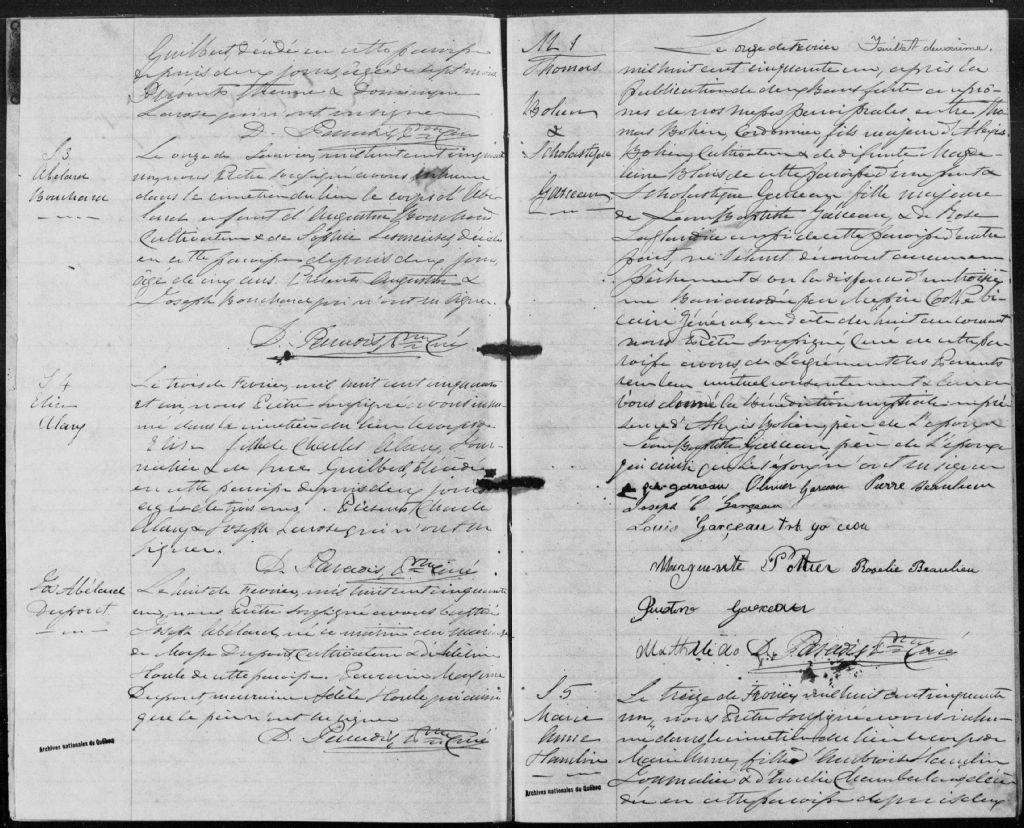 Guilbert, décédé en cette paroisse
depuis deux jours, âgé de sept mois
Présents & Dominique
Larose qui n'ont su signer
D. Paradis, Ptre Curé
S 3
Abélard
Bouchard
Le onze de Janvier, mil huit cent cinquante
un, nous Prêtre soussigné avons inhumé
dans le cimetière du lieu le corps d'Abé
lard enfant d'Augustin Bouchard
Cultivateur & de Sophie décédé
en cette paroisse depuis deux jours,
âgé de cinq ans. Présents Augustin &
Joseph Bouchard qui n'ont su signer.
D. Paradis, Ptre Curé
S 4
Alary
Le trois de Fevrier, mil huit cent cinquante
et un, nous Prêtre soussigné, avons inhu-
mé dans le cimetière du lieu le corps de
fille de Charles Alary, Jour-
nalier & de Guilbert, décédée
en cette paroisse depuis deux jours
agée de trois ans. Présents Charles
Alary & Joseph Larose qui n'ont su
signer.
D. Paradis, Ptre Curé
Jos. Abélard
Dupont
Le huit de Fevrier, mil huit cent cinquante
un, nous Prêtre soussigné avons baptisé
Joseph Abélard, né ce matin du mariage
de Dupont, Cultivateur & d'
Houle de cette paroisse. Parrain Maxime
Dupont, marraine Adèle Houle qui ainsi
que le père n'ont su signer
D. Paradis, Ptre Curé
Archives nationales du Québec
M 1
Thomas
&
Scholastique
Garceau
Le onze de Fevrier Feuillet deuxième.
mil huit cent cinquante un, après la
publication de deux bans faite au prô-
nes de nos messes paroissiales entre Tho
mas Cordonnier, fils majeur d'Alexis
Cultivateur & de défunte Magde-
leine Blais de cette paroisse d'une part &
Scholastique Garceau, fille majeure
de Jean Baptiste Garceau & de Rose
aussi de cette paroisse d'autre
part, ne s'étant découvert aucun em
pêchement & vu la dispense d'un troisiè
me Ban accordée par Messire Cooke Vi-
caire Général en date du huit du courant
nous Prêtre soussigné, Curé de cette pa-
roisse avons, de l'agrément des Parents
reçu leur mutuel consentement & leur a-
vons donné la bénédiction nuptiale en pré-
sence d'Alexis père de l'époux
Jean Baptiste Garceau père de l'épouse
qui ainsi que les époux n'ont su signer
garceau Olivier Garceau Pierre Beaulieu
Joseph E Garceau
Louis Garceau
Marguerite Pottier Rosalie Beaulieu
Garceau
Mathilde D. Paradis, Ptre Curé
S 5
Marie
Anne
Hamelin
Le treize de Fevrier, mil huit cent cinquante
un, nous Prêtre soussigné avons inhu-
mé dans le cimetière du lieu le corps de
Marie Anne, fille d'Ambroise Hamelin
Journalier & d'Emelie Chamberland décé-
dée en cette paroisse depuis deux
Archives nationales du Québec